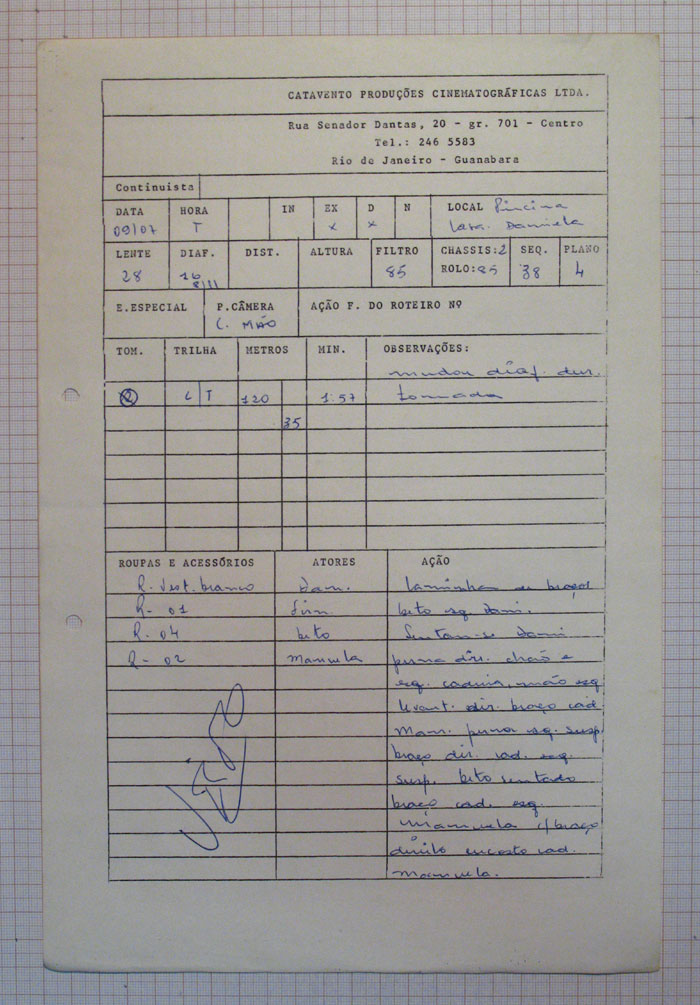 CATAVENTO PRODUÇÕES CINEMATOGRÁFICAS LTDA.
Rua Senador Dantas, 20 - gr. 701 - Centro
Tel.: 246 5583
Rio de Janeiro - Guanabara
Continuista
DATA HORA IN EX D N LOCAL Piscina
09/07 T x x Casa Daniela
LENTE DIAF. DIST. ALTURA FILTRO CHASSIS:2 SEQ. PLANO
28 16 85 ROLO:85 38 4
8/11
E.ESPECIAL P.CÂMERA AÇÃO F. DO ROTEIRO Nº
C. MÃO
TOM. TRILHA METROS MIN. OBSERVAÇÕES:
mudou diaf. dur.
2 C T 120 1:57 tomada
35
ROUPAS E ACESSÓRIOS ATORES AÇÃO
R. Vest. branco Dan. Caminham de braços
R- 01 beto esq. Dani.
R- 04 beto Sentam-se Dani
R- 02 Manuela perna dir. chão e
esq. cadeira, mão esq
levant. dir. braço cad
Man. perna esq. susp.
braço dir. cad. esq.
susp. beto sentado
braço cad. esq.
Manuela c/ braço
direito encosto cad.
Manuela.